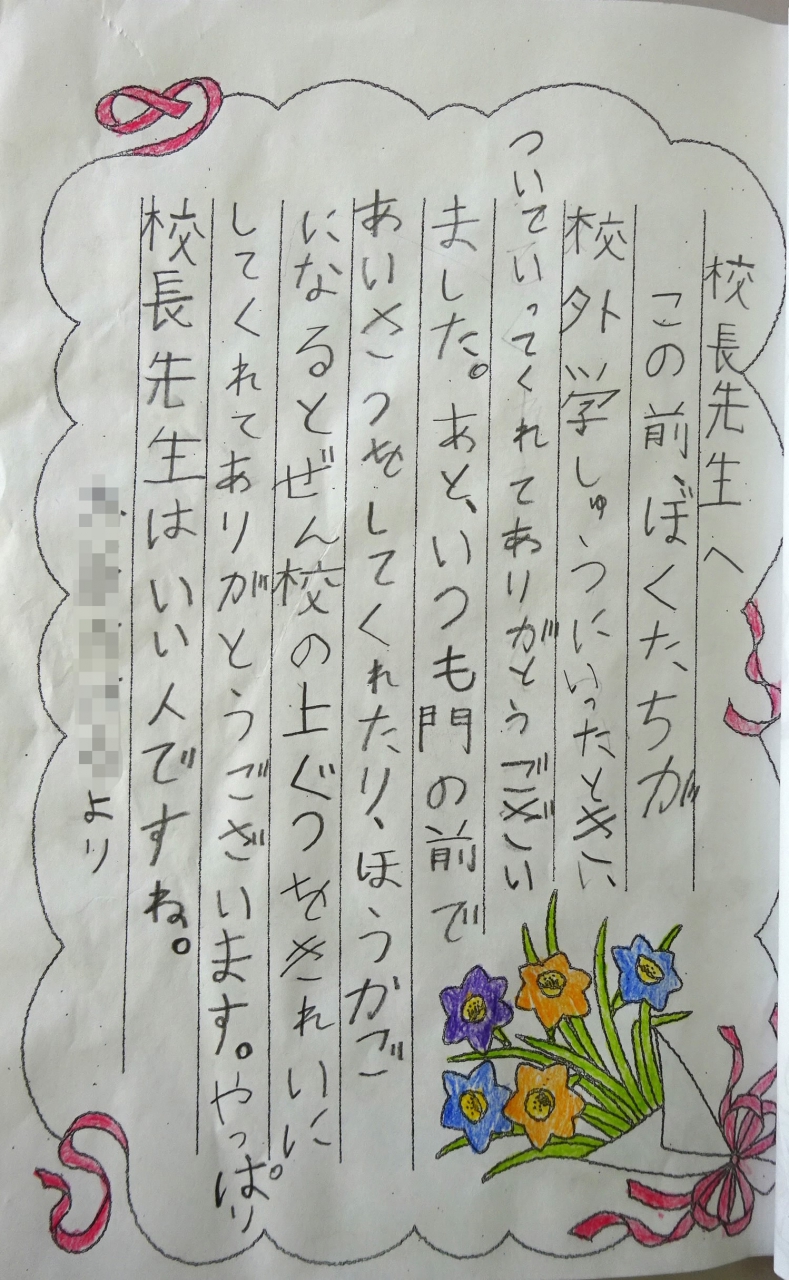 校長先生へ
この前、ぼくたちが
校外学しゅうにいったとき、
ついていってくれてありがとうござい
ました。あと、いつも門の前で
あいさつをしてくれたり、ほうかご
になるとぜん校の上ぐつをきれいに
してくれてありがとうございます。やっぱり
校長先生はいい人ですね。
より